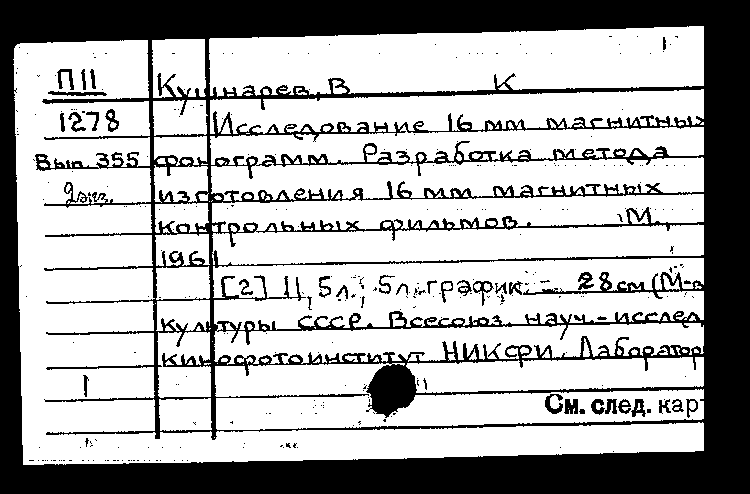 П11 Кушнарев, В К
1278 Исследование 16 мм магнитных
Вып. 355 фонограмм. Разработка метода
2 экз. изготовления 16 мм магнитных
контрольных фильмов. М.,
1961.
[2] 11, 5 л.; 5 л. график. - 28 см (М-в
культуры СССР. Всесоюз. науч.-исслед
кинофотоинститут НИКФИ. Лаборатор
1
См. след. кар